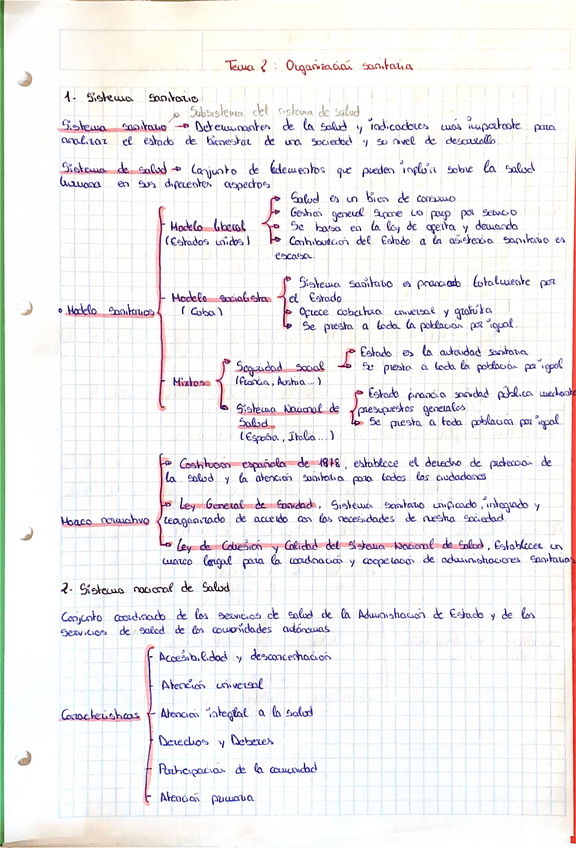 Tema 2: Organización sanitaria
1- Sistema sanitario
Subsistema del sistema de salud
Sistema sanitario → Determinantes de la salud y indicadores más importante para
analizar el estado de bienestar de una sociedad y su nivel de desarrollo.
Sistema de salud → Conjunto de elementos que pueden influir sobre la salud
humana en sus diferentes aspectos
• Modelo sanitarios
Modelo liberal
(Estados unidos)
Salud es un bien de consumo
Gestión general supone un pago por servicio
Se basa en la ley de oferta y demanda
Contribución del Estado a la asistencia sanitaria es
escasa.
Modelo socialista
(Cuba)
Sistema sanitario es financiado totalmente por
el Estado
Ofrece cobertura universal y gratuita
Se presta a toda la población por igual.
Mixtos
Seguridad social
(Francia, Austria...)
Estado es la autoridad sanitaria
Se presta a toda la población por igual
Sistema Nacional de
Salud
(España, Italia...)
Estado financia sanidad pública mediante
presupuestos generales
Se presta a toda población por igual
Marco normativo
Costitución española de 1978, establece el derecho de protección de
la salud y la atención sanitaria para todos los ciudadanos
Ley General de Sanidad. Sistema sanitario unificado, integrado y
reorganizado de acuerdo con las necesidades de nuestra sociedad.
Ley de Cohesión y Calidad del Sistema Nacional de Salud. Establecer un
marco lengal para la coordinación y cooperación de administraciones sanitarias
2- Sistema nacional de Salud
Conjunto coordinado de los servicios de salud de la Administración de Estado y de los
servicios de salud de las comunidades autónomas
Características
Accesibilidad y desconcentración
Atención universal
Atención integral a la salud
Derechos y Deberes
Participación de la comunidad
Atención primaria